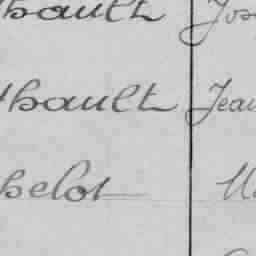 bault Jos
hault Jean
belot